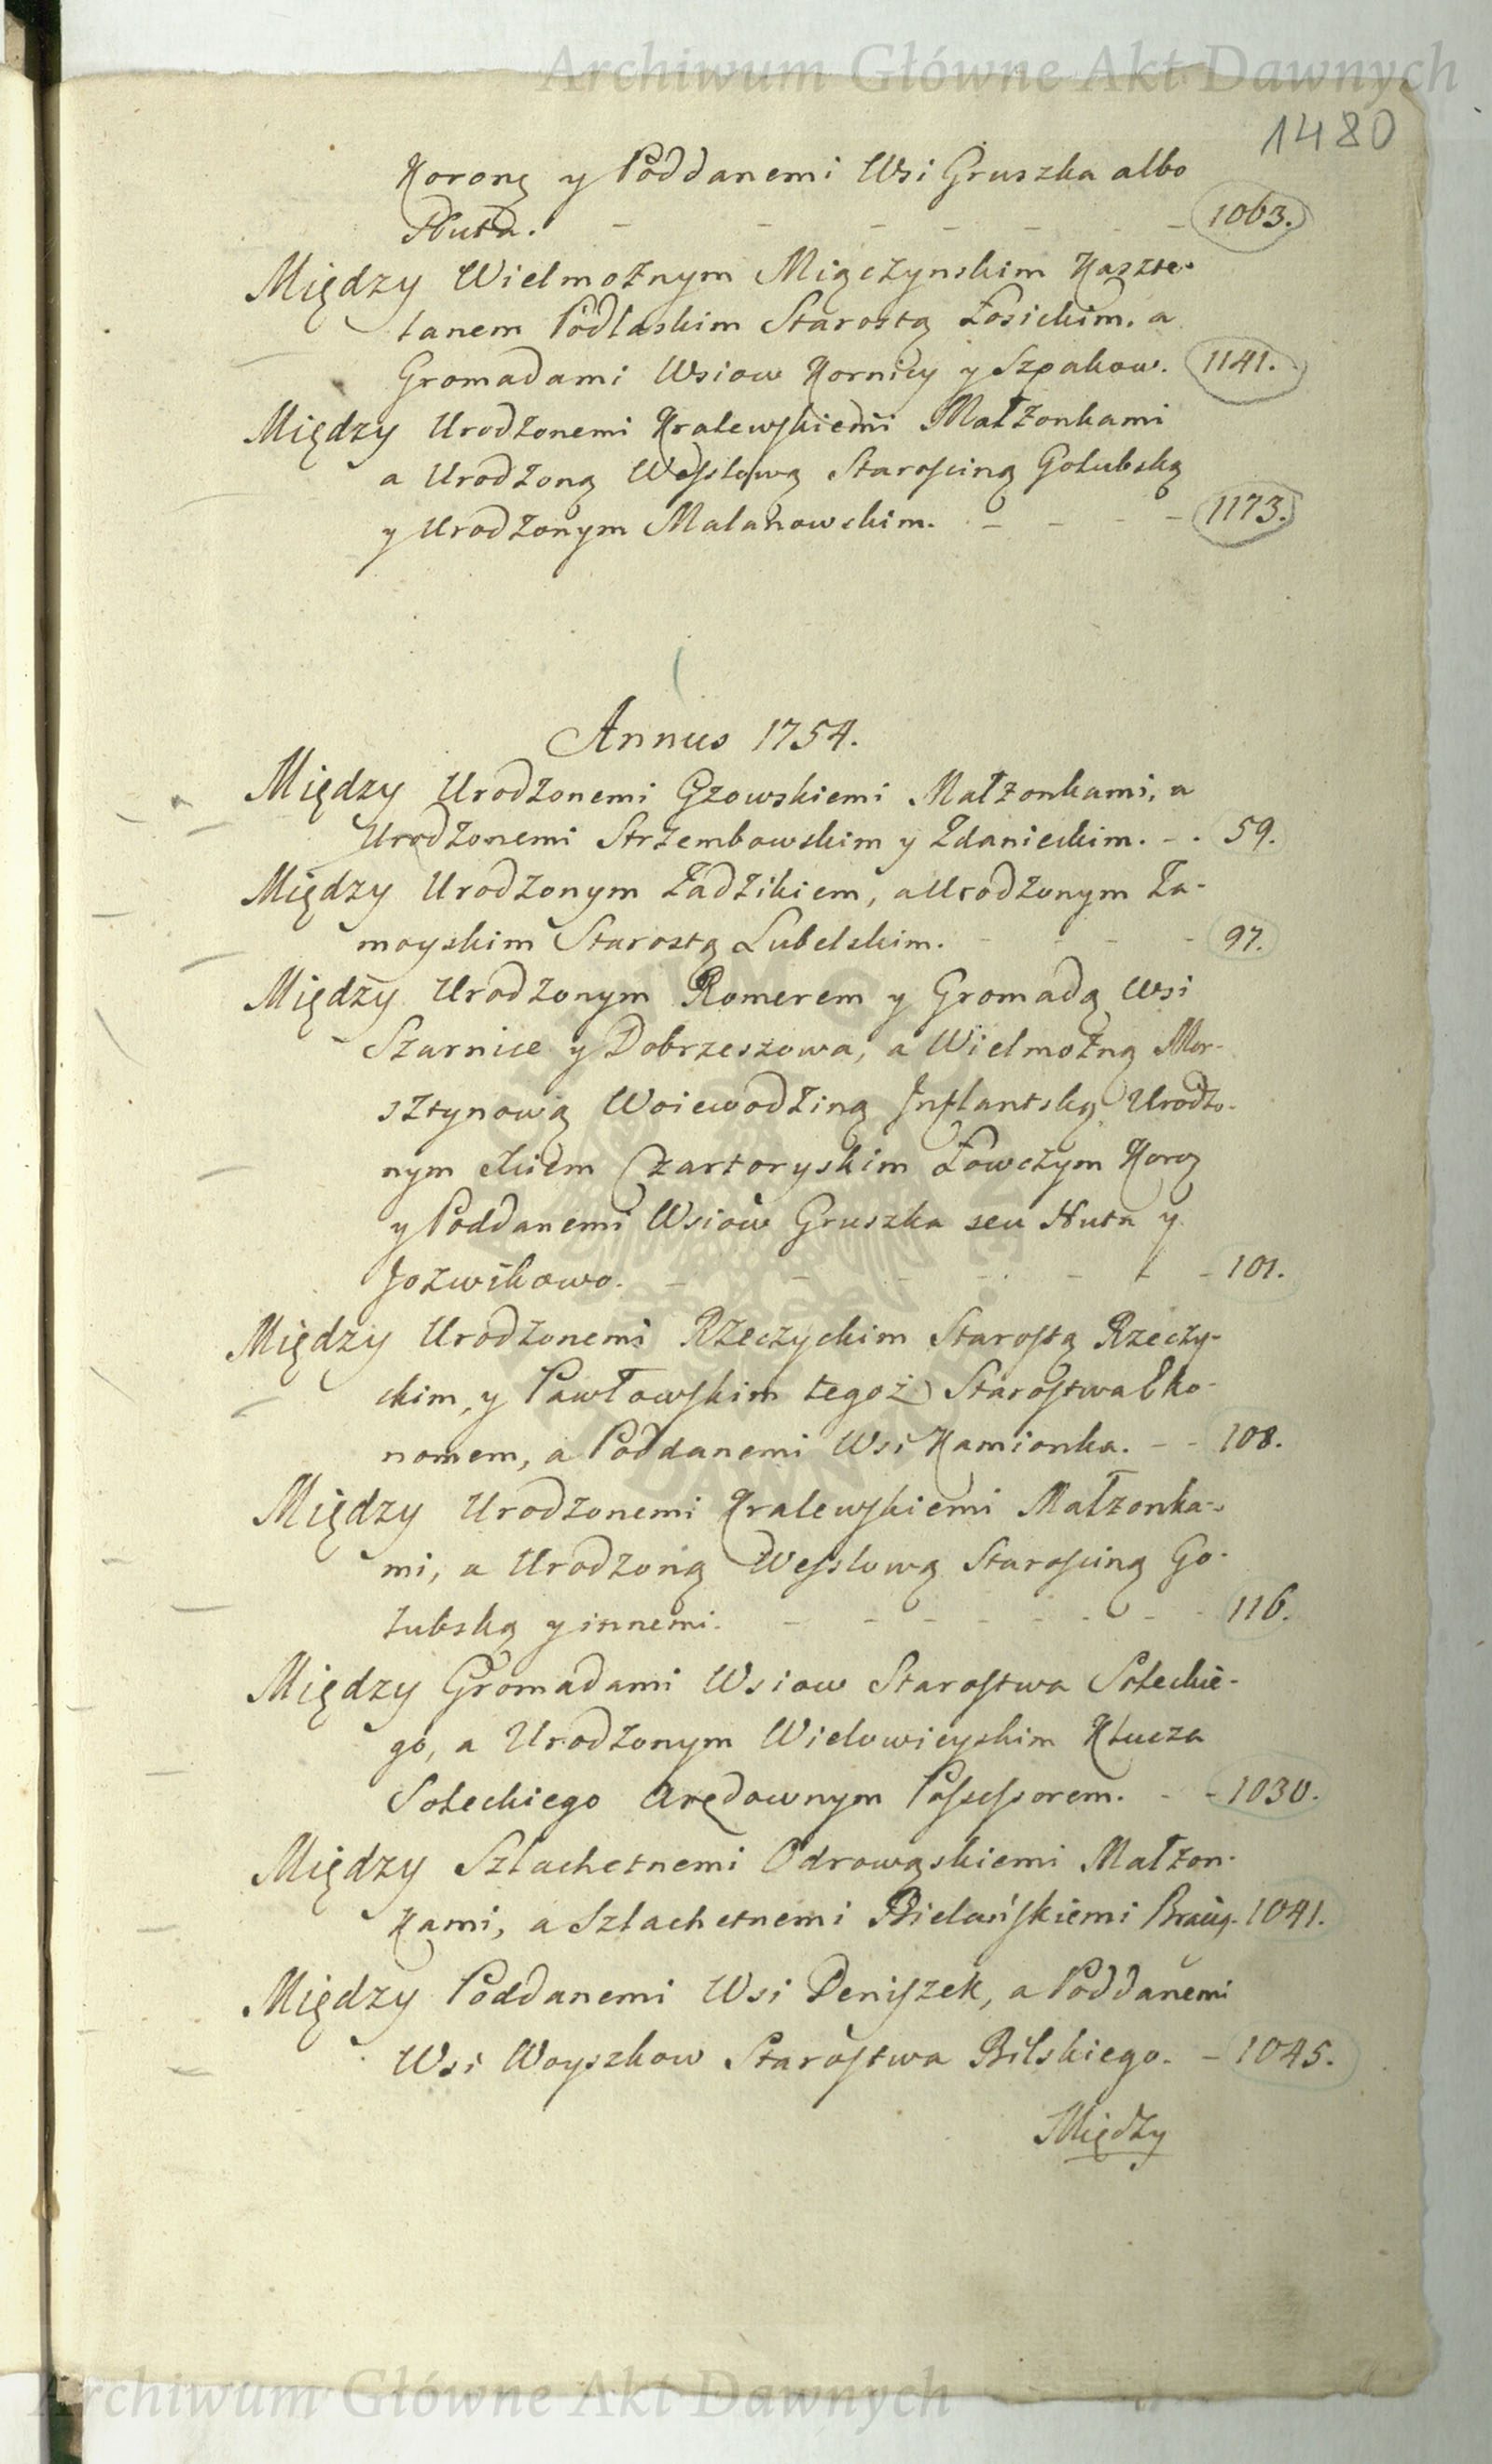 Archiwum Główne Akt Dawnych
1480
Koronę y Poddanemi Wsi Gruszka albo
Huta. - - - - - - - 1063.
Między Wielmożnym Miączynskim Kaszte-
lanem Podlaskim Starostą Łosickim. a
Gromadami Wsiow Kornicy y Szpakow. 1141.
Między Urodzonemi Kralewskiemi Małżonkami
a Urodzoną Wesslową Starościną Golubską
y Urodzonym Malanowskim. - - - - 1173.
Annus 1754.
Między Urodzonemi Gzowskiemi Małżonkami, a
Urodzonemi Strzembowskim y Zdanieckim. - . 59.
Między Urodzonym Żadzikiem, a Urodzonym Za-
moyskim Starostą Lubelskim. - - - - 97.
Między Urodzonym Romerem y Gromadą Wsi
Szarnice y Dobrzeszowa, a Wielmożną Mor-
sztynową Woiewodziną Inflantską Urodzo-
nym Czartoryskim Łowczym Kor
y Poddanemi Wsiow Gruszka seu Huta y
Jozwikowo. - - - - - - - 101.
Między Urodzonemi Rzeczyckim Starostą Rzeczy-
ckim, y Pawłowskim tegoż Starostwa Eko-
nomem, a Poddanemi Wsi Kamionka. - - 108.
Między Urodzonemi Kralewskiemi Małzonka-
mi, a Urodzoną Wesslową Starościną Go-
lubską y innemi. - - - - - - - - 116.
Między Gromadami Wsiow Starostwa Soleckie-
go, a Urodzonym Wielowieyskim Klucza
Soleckiego Arędownym Possessorem. - - 1030.
Między Szlachetnemi Odrowąskiemi Małżon-
kami, a Szlachetnemi Bielańskiemi Bracią. 1041.
Między Poddanemi Wsi Deniszek, a Poddanemi
Wsi Woyszkow Starostwa Bilskiego. - 1045.
Między
Archiwum Główne Akt Dawnych